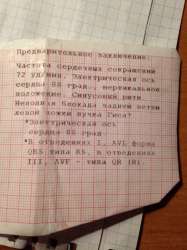 Предварительное заключение:
Частота сердечных сокращений
72 уд/мин. Электрическая ось
сердца 88 град., вертикальное
положение. Синусовый ритм
Неполная блокада задней ветви
левой ножки пучка Гиса?
*Электрическая ось
сердца 88 град
*В отведениях I, AVL форма
QRS типа RS, в отведениях
III, AVF - типа QR (R)